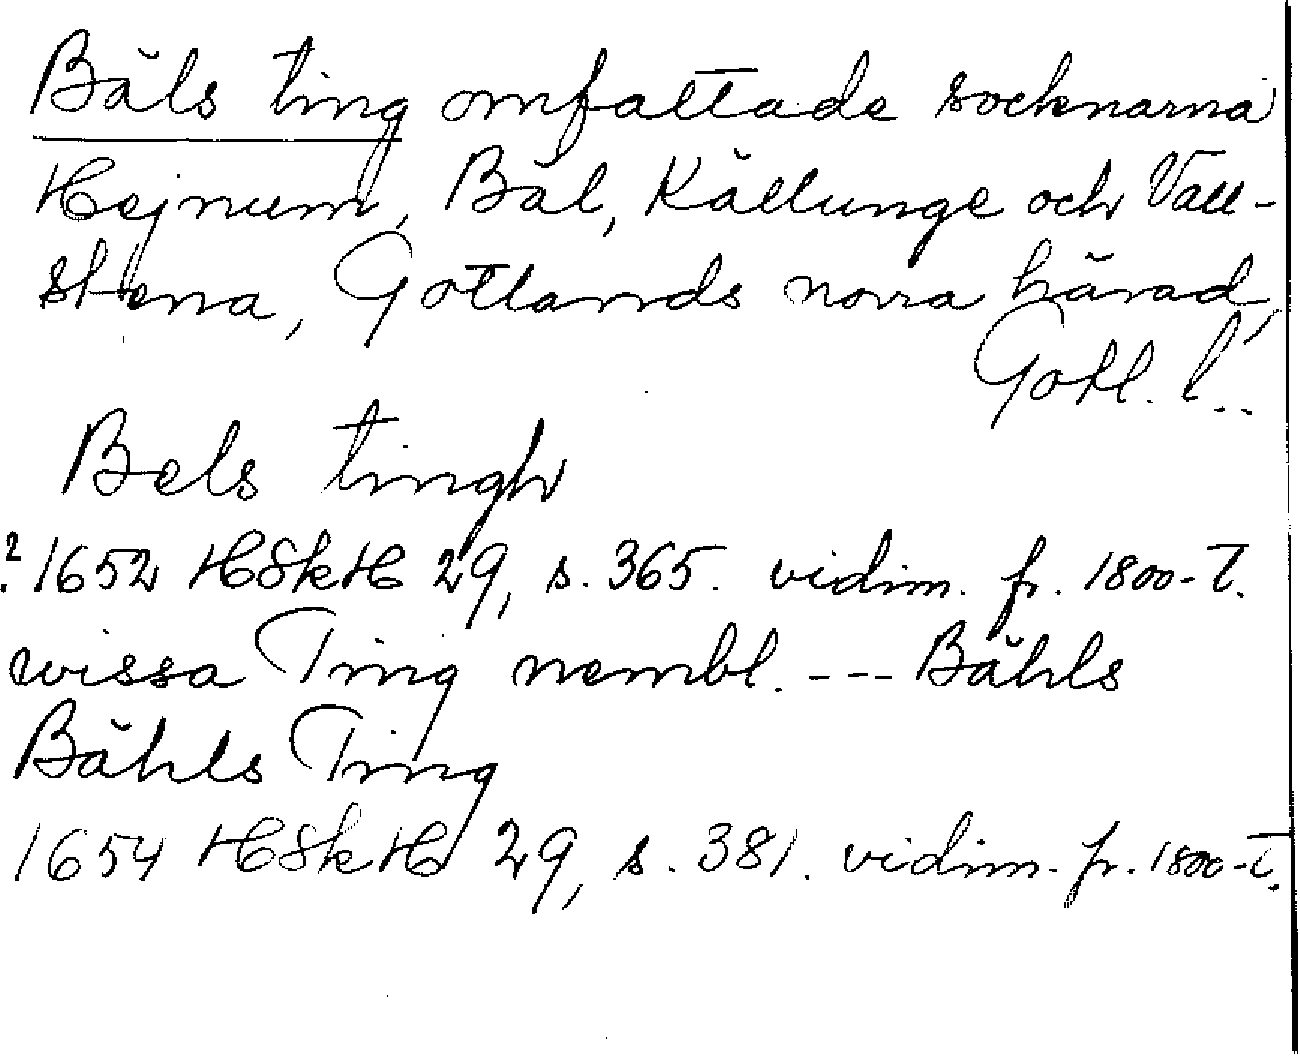 Bäls ting omfattade socknarna
Hejnum, Bäl, Källunge och Vall-
stena, Gotlands norra härad,
Gotl. l..
Bels tingh
? 1652 HSkH 29, s. 365. vidim. fr. 1800-t.
wissa Ting nembl. --- Bähls
Bähls Ting
1654 HSkH 29, s. 381. vidim. fr. 1800-t.